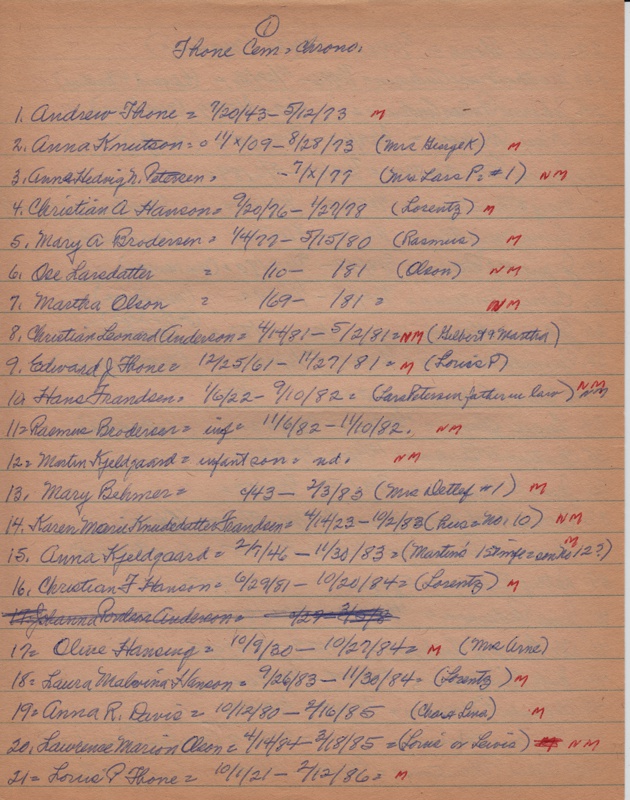 ①
Thone Cem = chrono.
1. Andrew Thone = 7/20/43 - 5/12/73 M
2. Anna Knutson = 11/x/09 - 8/28/73 (Mrs George K) M
3. Anna Hedvig N. Petersen = - 7/x/77 (Mrs Lars P. = #1) NM
4. Christian A Hanson = 9/20/76 - 1/27/78 (Lorentz) M
5. Mary A Brodersen = 1/4/77 - 5/15/80 (Rasmus) M
6. Ose Larsdatter = 1/10 - 1/81 (Olson) NM
7. Martha Olson = 1/69 - 1/81 = NM
8. Christian Leonard Anderson = 4/14/81 - 5/2/81 = NM (Gilbert & Martha)
9. Edward J Thone = 12/25/61 - 11/27/81 = M (Louis P)
10. Hans Frandsen = 1/6/22 - 9/10/82 = (Lars Petersen father in law) NM NM
11 = Rasmus Brodersen = inf = 11/6/82 - 11/10/82. NM
12 = Martin Kjeldgaard = infant son = nd. NM
13. Mary Behmer = /43 - 2/3/83 (Mrs Detlef #1) M
14. Karen Marie Knudsdatter Frandsen = 4/14/23 - 10/2/83 (hus = No. 10) NM
15. Anna Kjeldgaard = 2/7/46 - 11/30/83 = (Martin's 1st wife = son No 12?) M
16. Christian F Hanson = 6/29/81 - 10/20/84 = (Lorentz) M
17 Johanna Anderson =
17 = Olive Hansing = 10/9/30 - 10/27/84 = M (Mrs Arne)
18 = Laura Malvina Hanson = 9/26/83 - 11/30/84 = (Lorentz) M
19 = Anna R. Davis = 10/12/80 - 2/16/85 (Chas & Lena) M
20. Lawrence Marion Olson = 4/14/84 - 3/18/85 = (Louis or Lewis) NM
21 = Louis P Thone = 10/1/21 - 2/12/86 = M